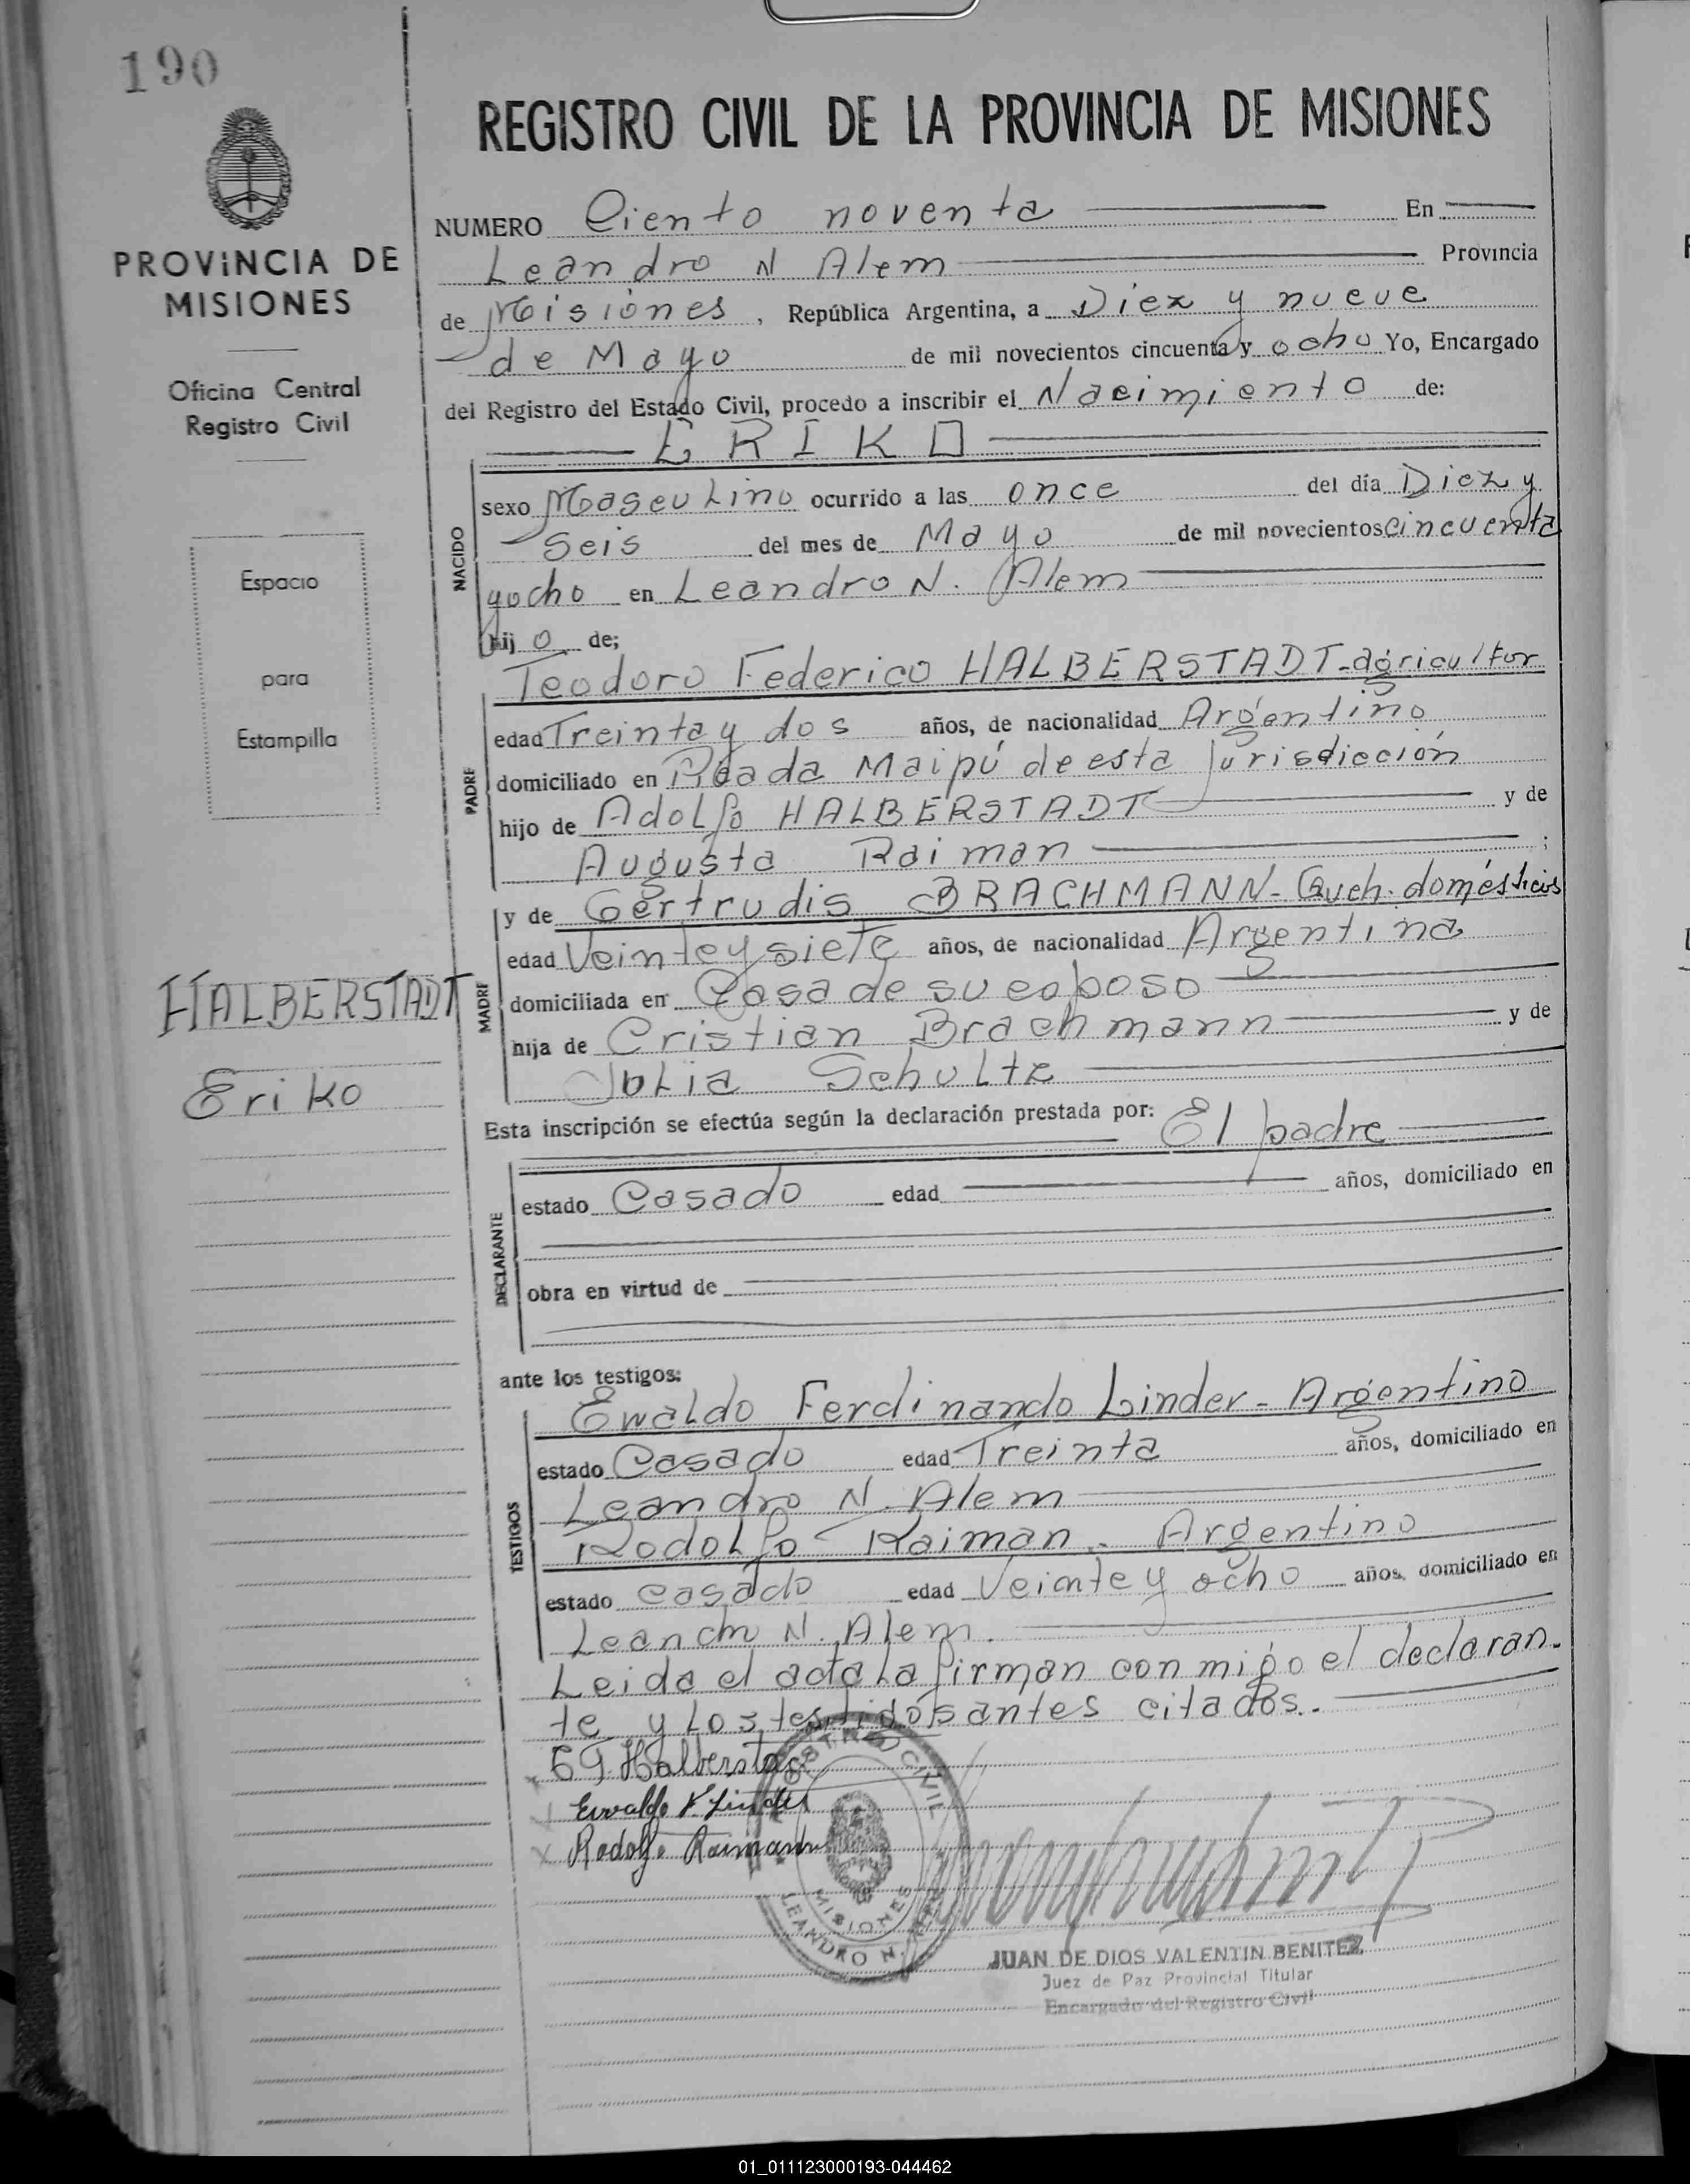 190
PROVINCIA DE
MISIONES
Oficina Central
Registro Civil
Espacio
para
Estampilla
HALBERSTADT
Eriko
REGISTRO CIVIL DE LA PROVINCIA DE MISIONES
NUMERO Ciento noventa En
Leandro N Alem Provincia
de Misiones, República Argentina, a Diez y nueve
de Mayo de mil novecientos cincuenta y ocho Yo, Encargado
del Registro del Estado Civil, procedo a inscribir el Nacimiento de:
ERIKO
NACIDO
sexo Masculino ocurrido a las once del día Diez y
seis del mes de Mayo de mil novecientos cincuenta
y ocho en Leandro N. Alem
hijo de;
PADRE
Teodoro Federico HALBERSTADT-agricultor
edad Treinta y dos años, de nacionalidad Argentino
domiciliado en Picada Maipú de esta jurisdicción
hijo de Adolfo HALBERSTADT y de
Augusta Raiman ;
MADRE
y de Gertrudis BRACHMANN- Queh. domésticos
edad Veinte y siete años, de nacionalidad Argentina
domiciliada en Casa de su esposo
hija de Cristian Brachmann y de
Julia Schultz
Esta inscripción se efectúa según la declaración prestada por: El padre
DECLARANTE
estado Casado edad años, domiciliado en
obra en virtud de
ante los testigos:
TESTIGOS
Ewaldo Ferdinando Linder - Argentino
estado Casado edad Treinta años, domiciliado en
Leandro N. Alem
Rodolfo Raiman - Argentino
estado casado edad Veinte y ocho años, domiciliado en
Leandro N. Alem.
Leida el acta la firman con migo el declaran-
te y los testigos antes citados.-
Halberstadt
Ewaldo F. Linder
Rodolfo Raimann
REGISTRO CIVIL
MISIONES
LEANDRO N. ALEM
JUAN DE DIOS VALENTIN BENITEZ
Juez de Paz Provincial Titular
Encargado del Registro Civil
01_011123000193-044462